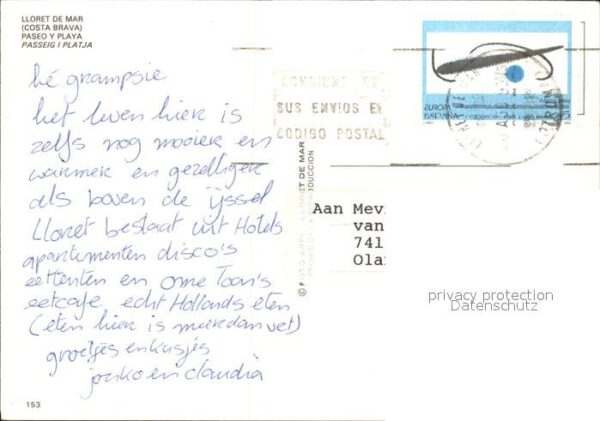 LLORET DE MAR
(COSTA BRAVA)
PASEO Y PLAYA
PASSEIG I PLATJA
hé grampsie
het leven hier is
zelfs nog mooier en
warmer en gezelliger
als boven de ijssel
Lloret bestaat uit Hotels
apartementen disco's
eettenten en ome Toon's
eetcafe echt Hollands eten
(eten hier is meer dan vet)
groetjes en kusjes
en claudia
153
SUS ENVIOS E
CODIGO POSTAL
EUROPA
ESPAÑA
LLORET DE MAR
Aan Mev
van
741
Ola
privacy protection
Datenschutz